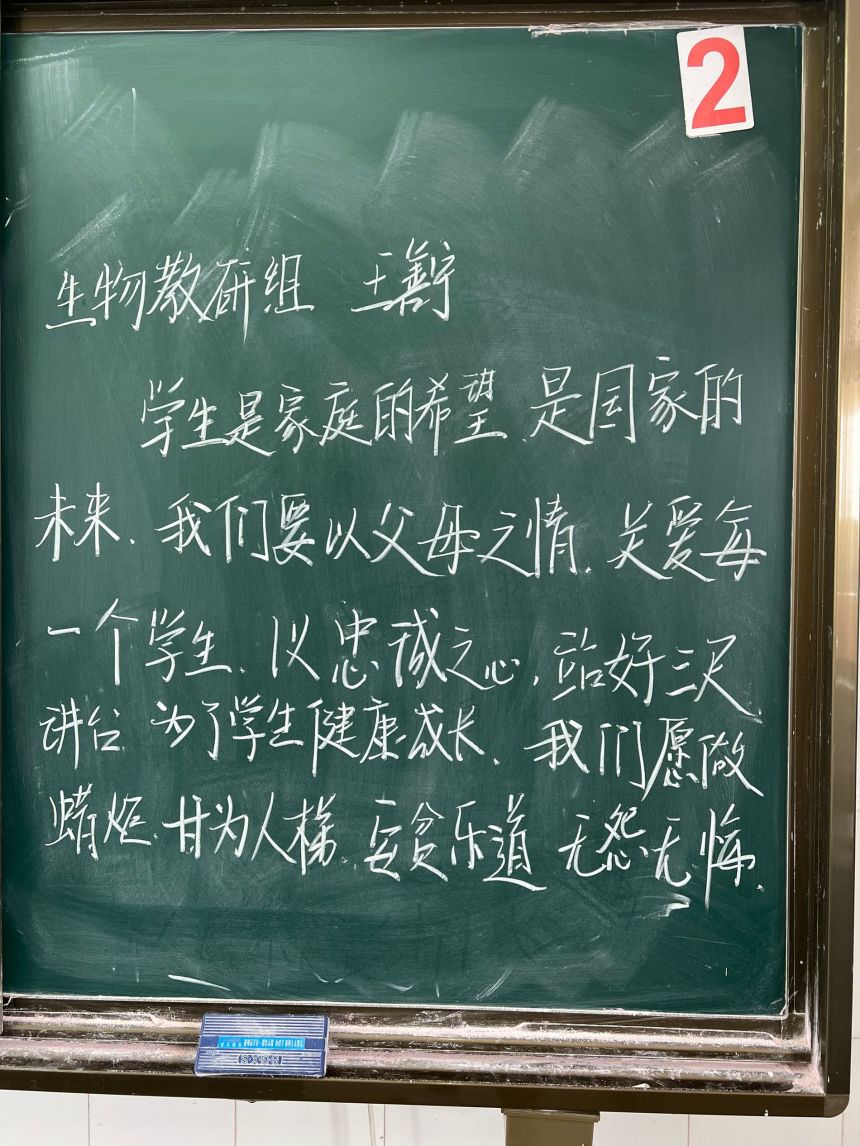 2
生物教研组 王
学生是家庭的希望、是国家的
未来.我们要以父母之情.关爱每
一个学生、以忠诚之心,站好三尺
讲台 为了学生健康成长、我们愿做
蜡炬、甘为人梯、安贫乐道 无怨无悔.